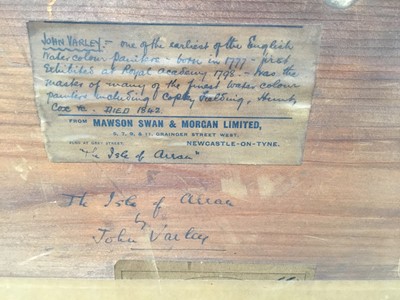 JOHN VARLEY. - one of the earliest of the English
Water colour painters - born in 1777 - first
exhibited at Royal academy 1798 - was the
master of many of the finest water colour
painters including Copley Fielding, Hunt,
Cox &c. DIED 1842.
FROM MAWSON SWAN & MORGAN LIMITED,
5, 7, 9 & 11, GRAINGER STREET WEST,
NEWCASTLE-ON-TYNE.
"The Isle of Arran"
The Isle of Arran
by
John Varley